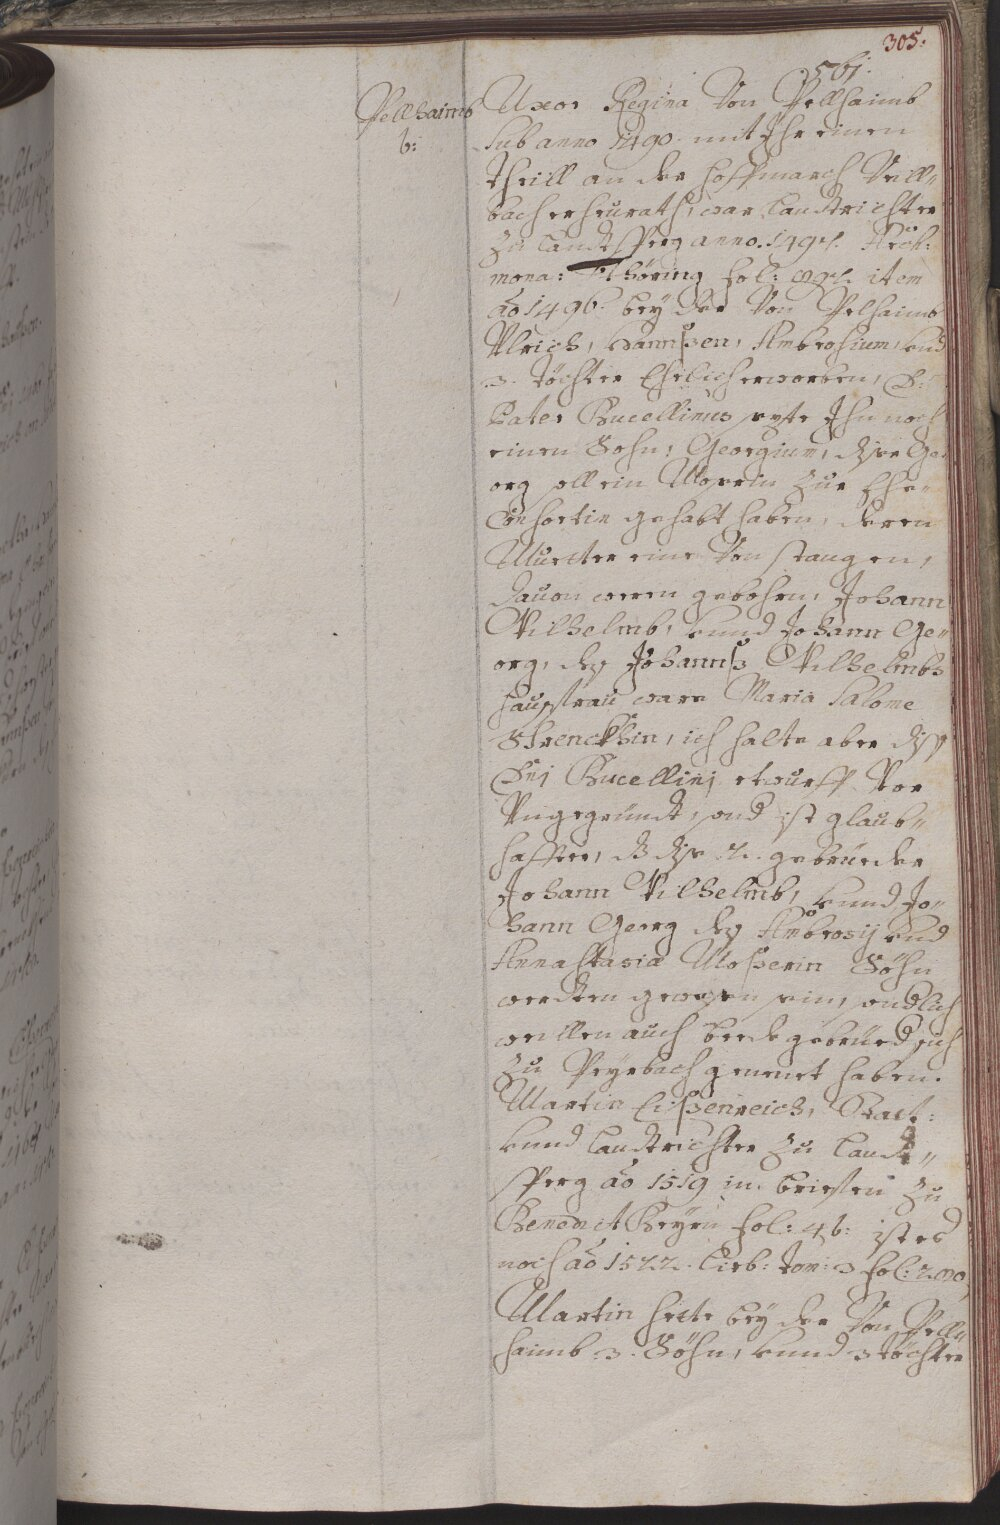 305.
561.
Pellhaimb
b:
Uxor Regina Von Pellhaimb
sub anno 1490. mit Ihr einen
theill an der hoffmarch Veill„
bach erheurath, war Landtrichter
zu Landtsperg anno. 1494. Arch:
mona: Thöring fol: 894. item
ao 1496. bey der Von Pelhaimb
Ulrich, Hannßen, Ambrosium, und
3. töchter Ehelich erworben, P:
Pater Bucellinus sezte Ihm noch
einen Sohn, Georgium, diser Ge„
org soll ein Moserin zur Ehe„
Consortin gehabt haben, deren
Muetter eine Von stangen,
dauon weren gebohrn, Johann
Wilhelmb, und Johann Ge„
org, deß Johannß Wilhelmbs
haussfrau ware Maria Salome
Schrenckhin, ich halte aber diss
Bucellini entwurff Vor
Vngegründt, und ist glaub„
haffter, dz dise 2. gebrüeder
Johann Wilhelmb, und Jo„
hann Georg deß Ambrosij und
Annastasia Moßerin Söhn
werdten gewesen sein, endlich
wellen auch beede gebrüed sich
zu Peyrbach genenet haben.
Martin Eißenreich, Statt:
und Landtrichter zu Landt„
sperg ao 1519 in briefen zu
Benedict Beyrn fol: 46: ist es
noch ao 1522. Lieb: Tom: 3 fol: 280,
Martin hette bey der Von Pell„
haimb 3. Söhn, und 3 töchter